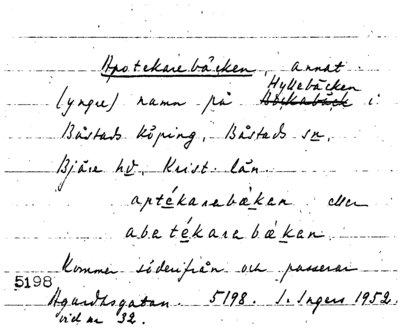 Apotekarebäcken, annat
Hyllebäcken
(yngre) namn på Bockabäck i
Båstads köping, Båstads sn,
Bjäre hd, Krist. län.
aptékarabækan eller
abatékarabækan.
Kommer söderifrån och passerar
5198
Agardhsgatan. 5198. I. Ingers 1952.
vid nr 32.